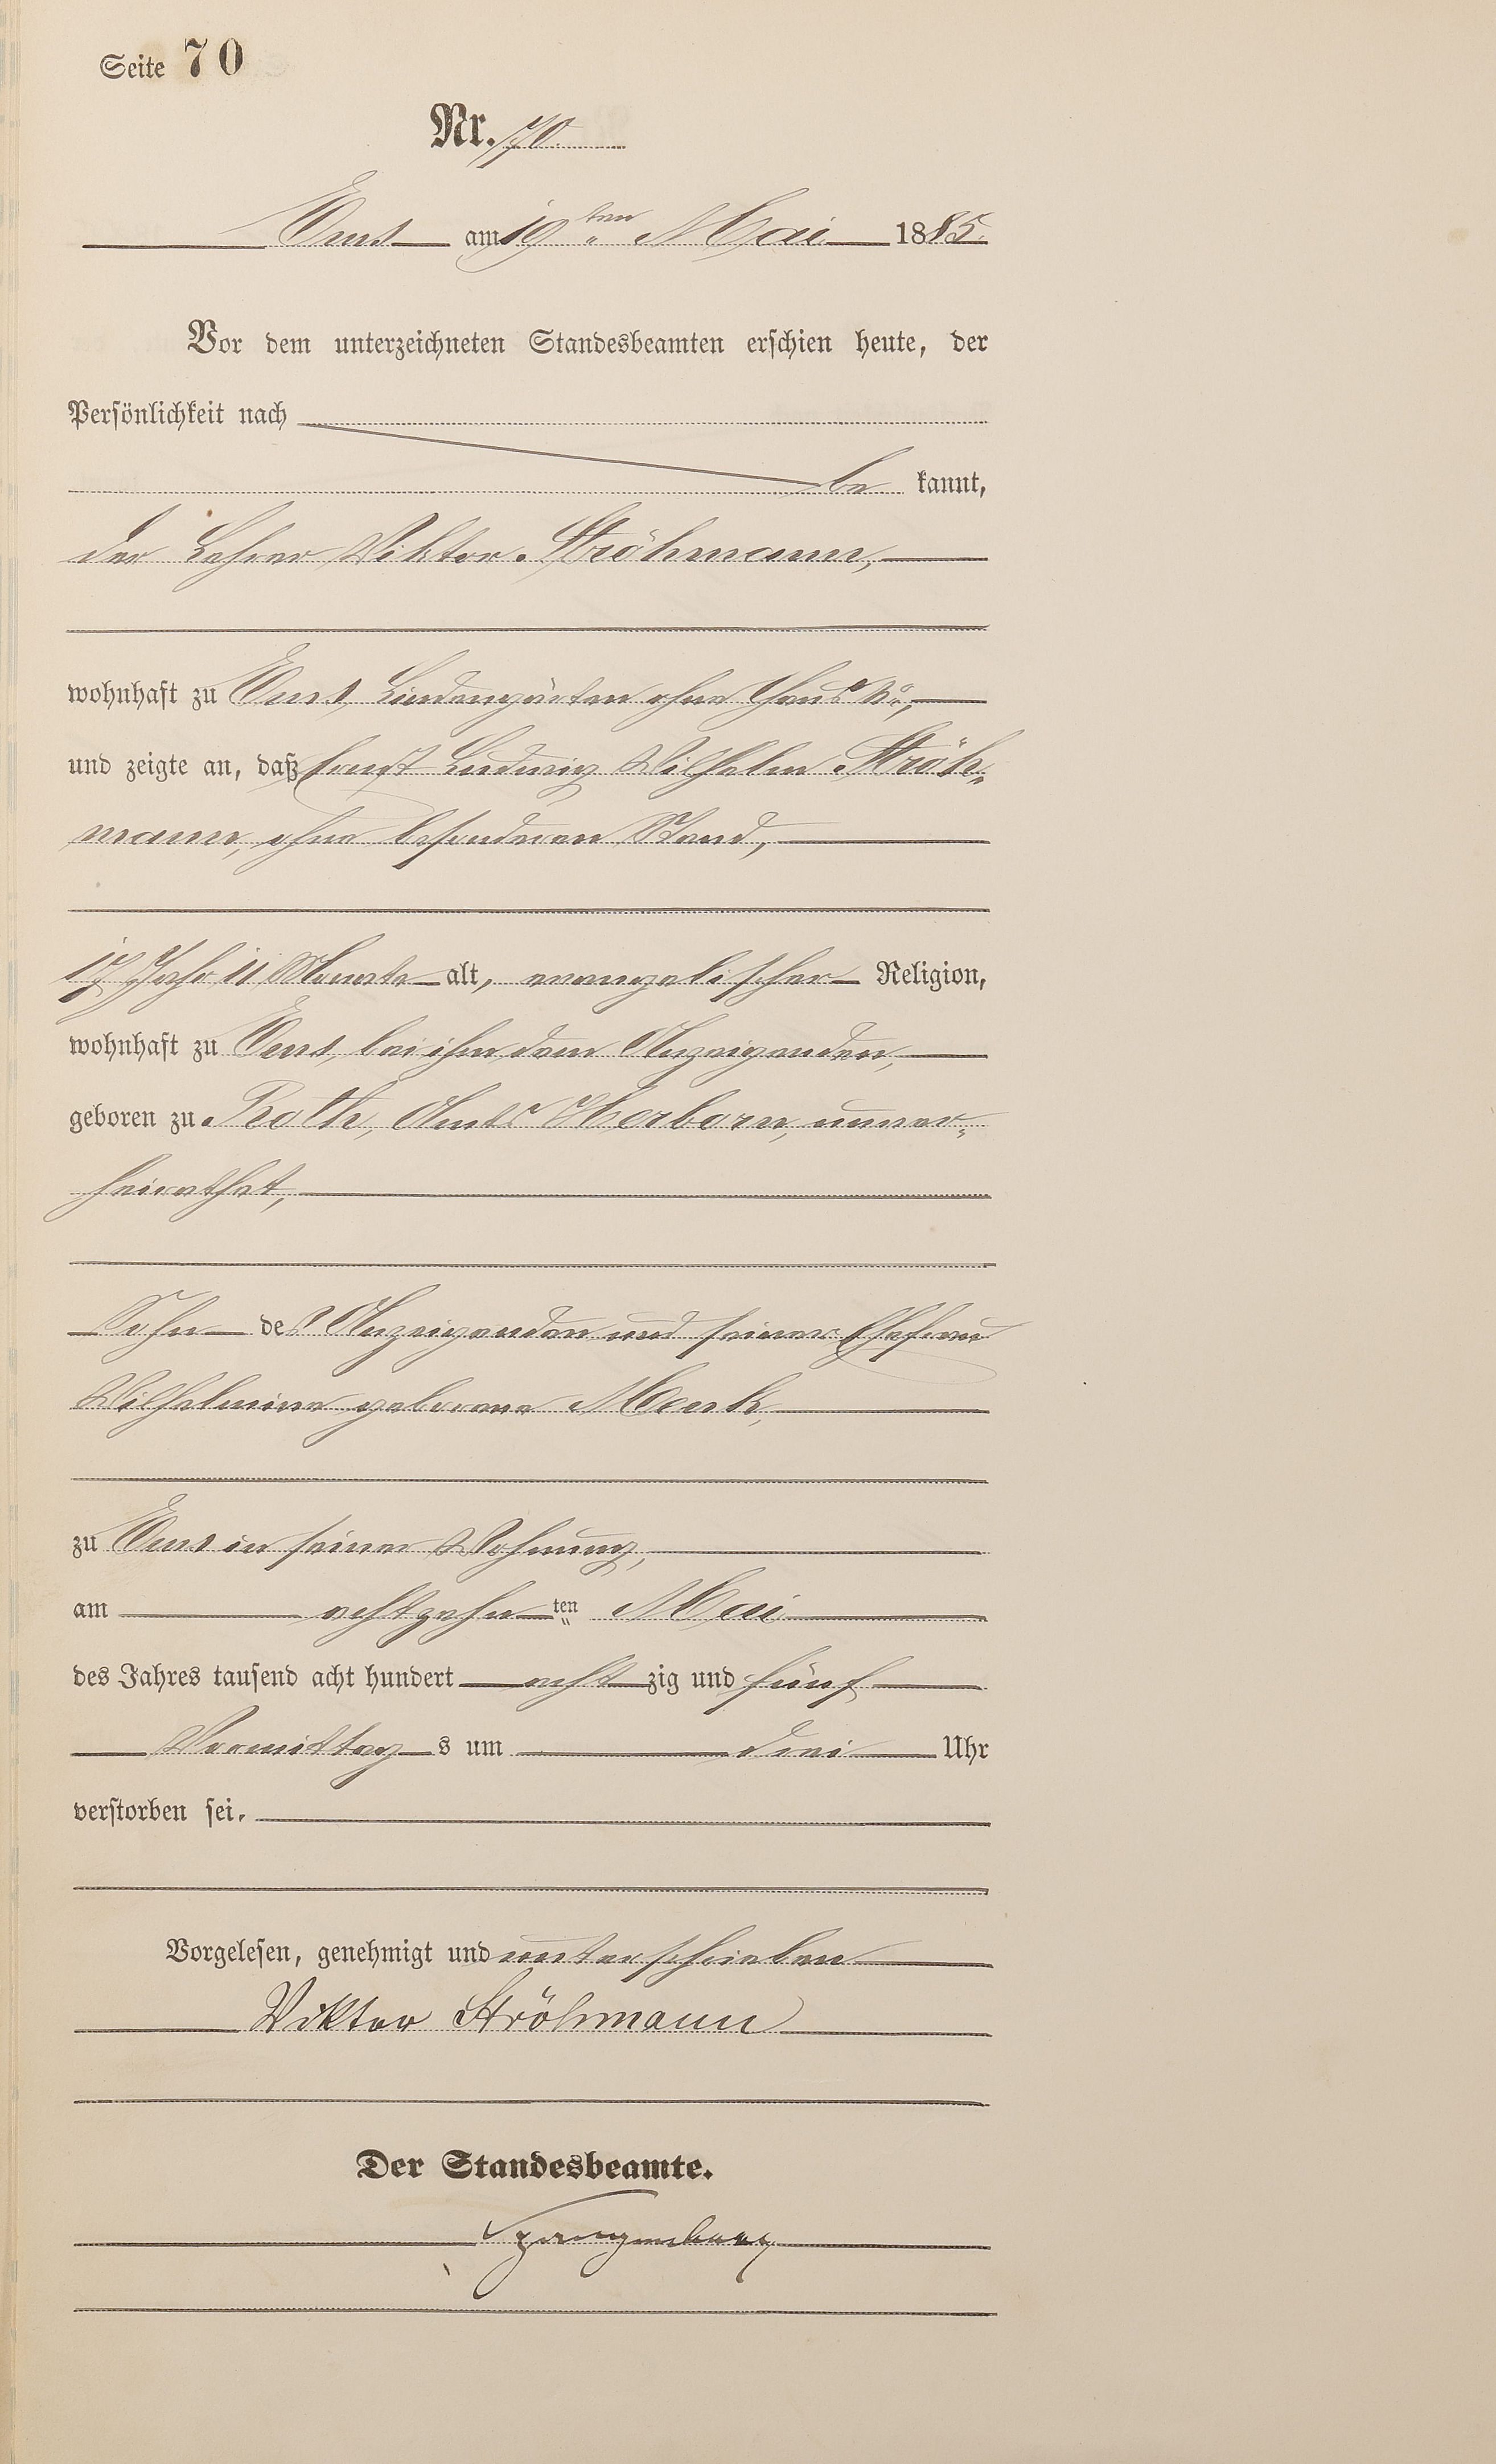 Seite 70
Nr. 70.
Ems am 19ten Mai 1885.
Vor dem unterzeichneten Standesbeamten erschien heute, der
Persönlichkeit nach
be kannt,
der Lehrer Viktor Ströhmann,
wohnhaft zu Ems, Lindengärten ohne Haus No,
und zeigte an, daß Ernst Ludwig Wilhelm Ströh-
mann, ohne besonderen Stand,
17 Jahr 11 Monate alt, evangelischer Religion,
wohnhaft zu Ems, bei ihm, dem Anzeigenden,
geboren zu Roth, Amts Herborn, unver-
heirathet,
Sohn des Anzeigenden und seiner Ehefrau
Wilhelmine geborene Menk,
zu Ems in seiner Wohnung,
am achtzehnten Mai
des Jahres tausend acht hundert achtzig und fünf
Vormittags um drei Uhr
verstorben sei.
Vorgelesen, genehmigt und unterschrieben
Viktor Ströhmann
Der Standesbeamte.
Spangenberg